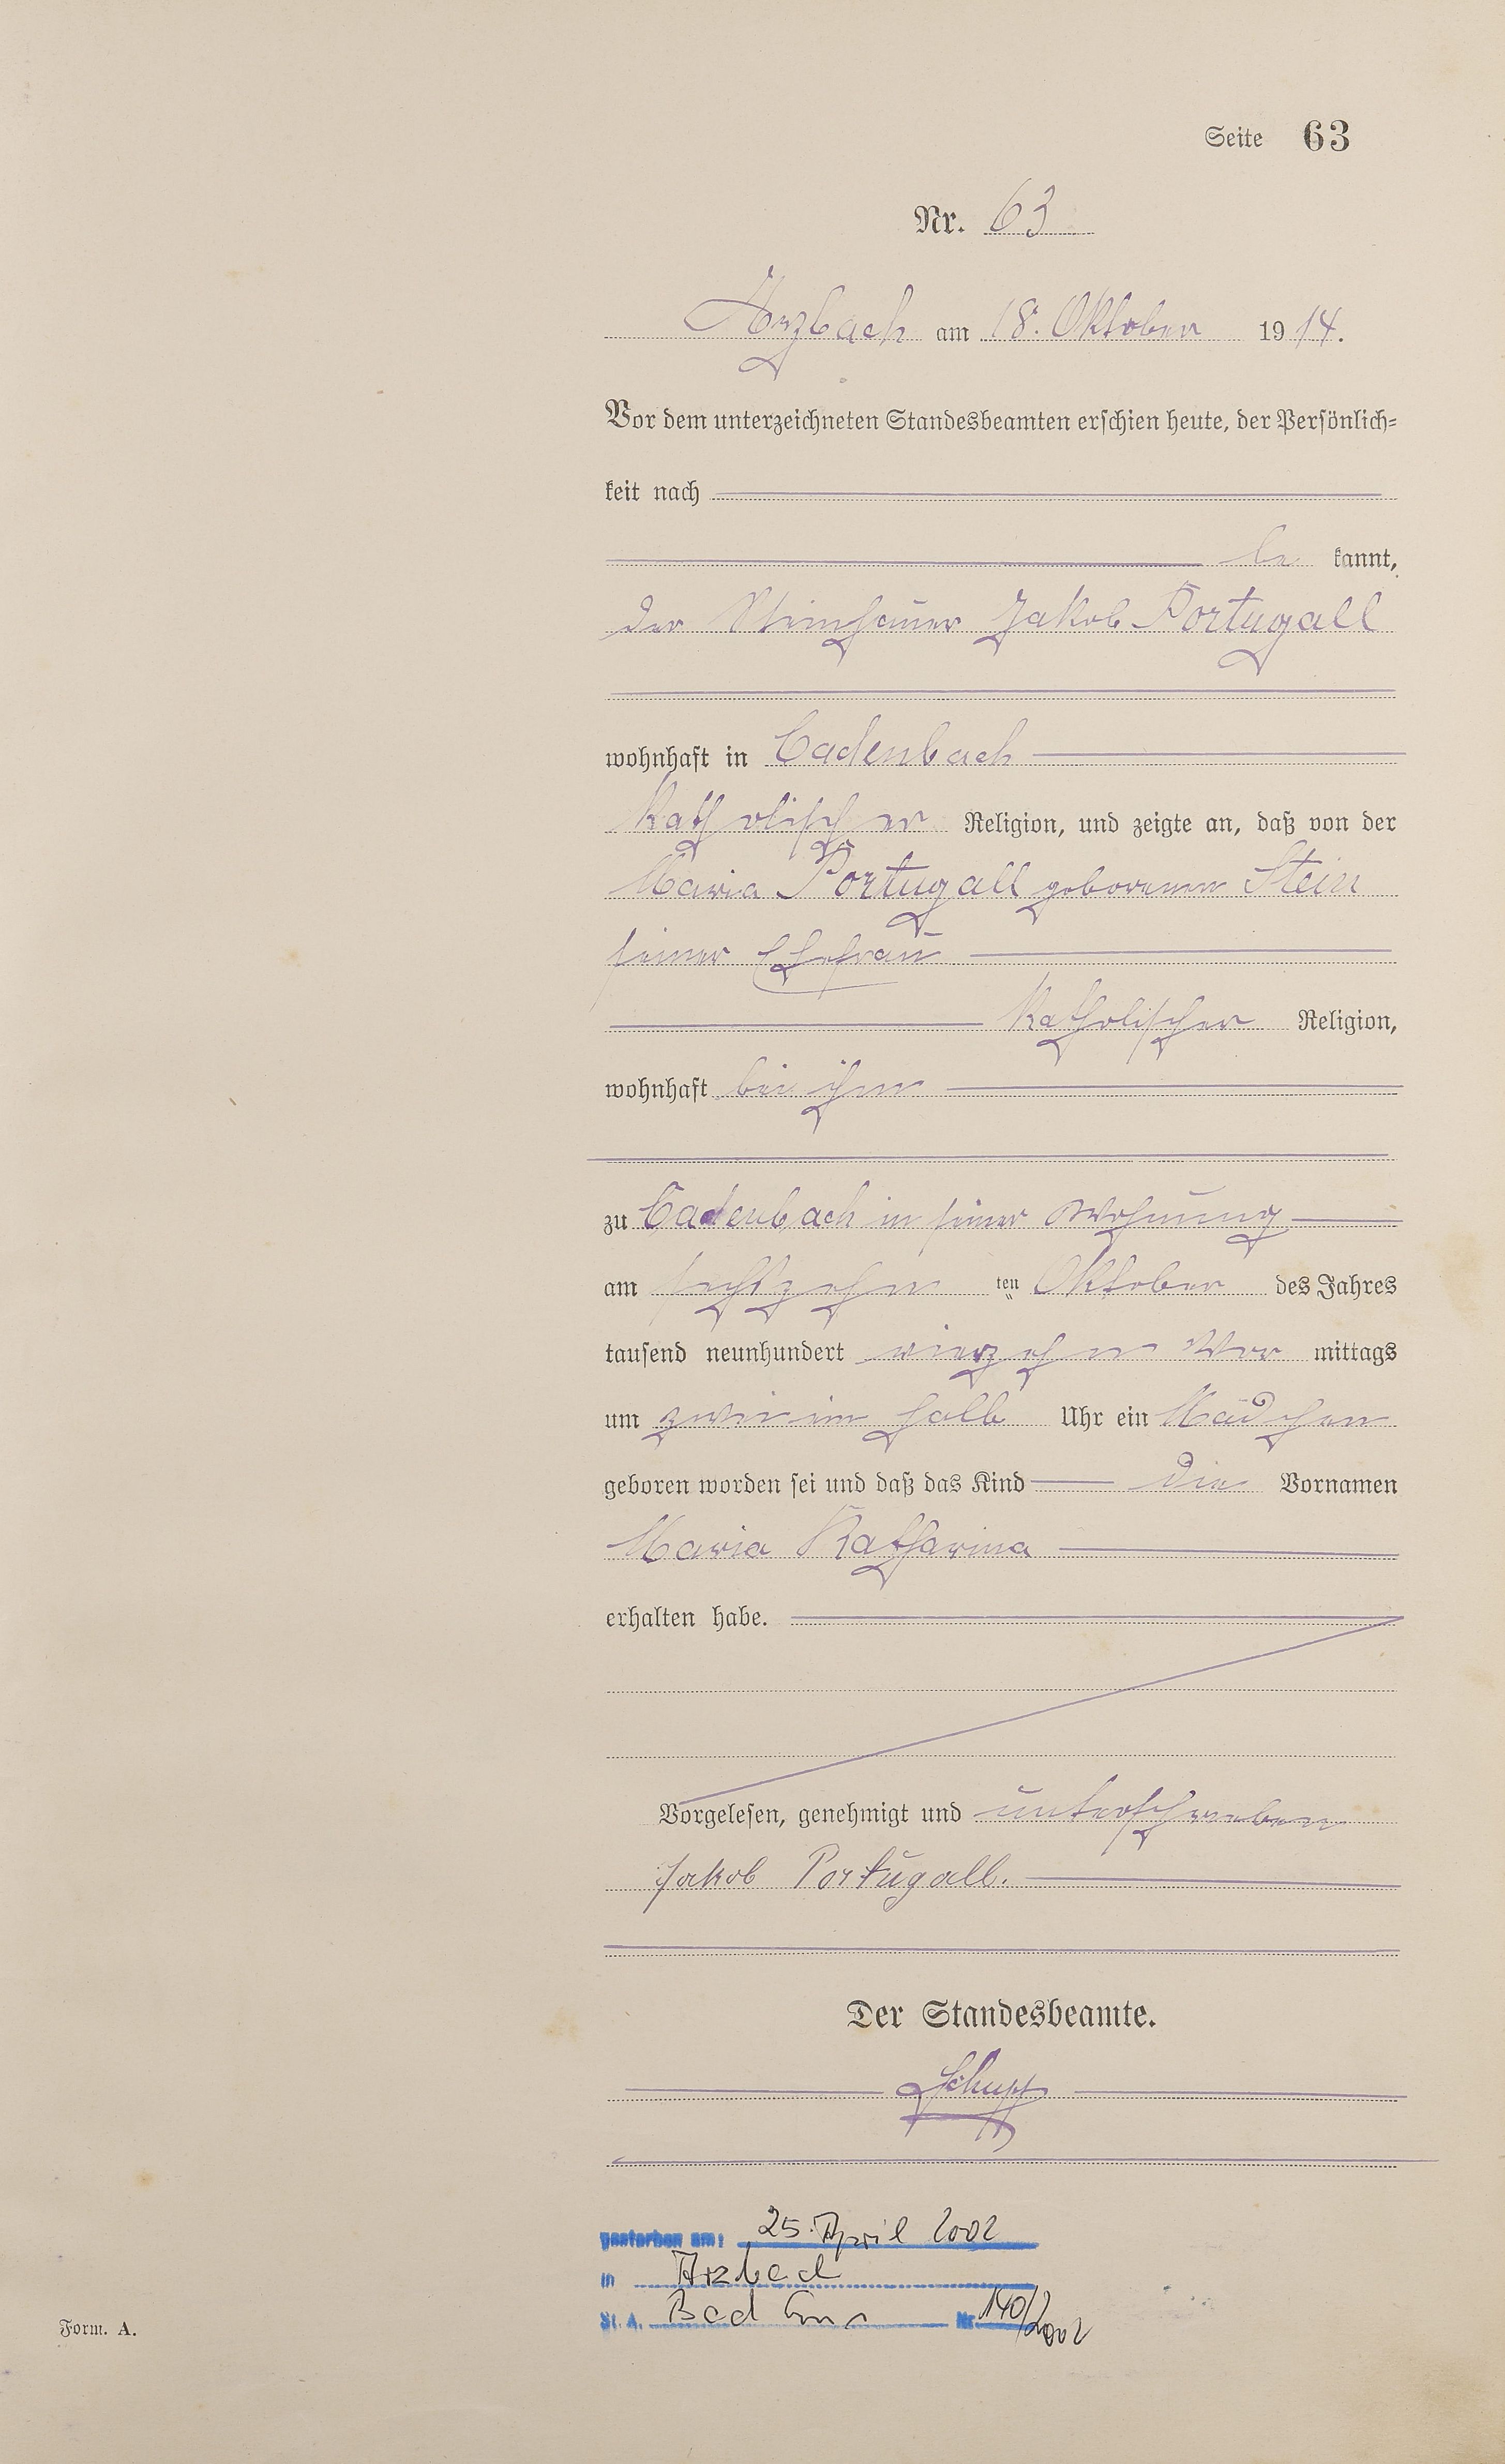 Seite 63
Nr. 63
Arzbach am 18. Oktober 1914.
Vor dem unterzeichneten Standesbeamten erschien heute, der Persönlich-
keit nach
be kannt,
der Steinhauer Jakob Portugall
wohnhaft in Cadenbach
katholischer Religion, und zeigte an, daß von der
Maria Portugall geborenen Stein
seiner Ehefrau
katholischer Religion,
wohnhaft bei ihm
zu Cadenbach in seiner Wohnung
am sechszehn ten Oktober des Jahres
tausend neunhundert vierzehn Vor mittags
um zweiein halb Uhr ein Mädchen
geboren worden sei und daß das Kind die Vornamen
Maria Katharina
erhalten habe.
Vorgelesen, genehmigt und unterschrieben
Jakob Portugall.
Der Standesbeamte.
Schupp
gestorben am: 25. April 2002
in Arzbach
St. A. Bad Ems Nr. 140/2002
Form. A.